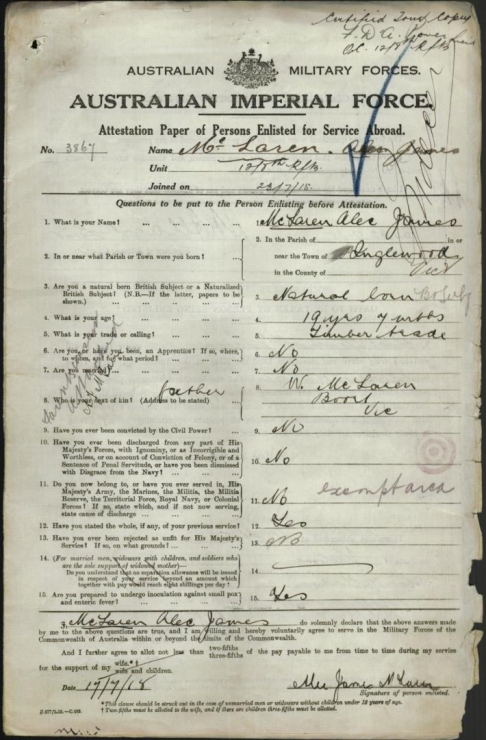 Certified True Copy
AUSTRALIAN MILITARY FORCES.
AUSTRALIAN IMPERIAL FORCE.
Attestation Paper of Persons Enlisted for Service Abroad.
No. 3867 Name McLaren. Alec James
Unit 12/8th Rfts
Joined on 23/7/15
Questions to be put to the Person Enlisting before Attestation.
1. What is your Name? ... ... ... ... 1. McLaren Alec James
2. In or near what Parish or Town were you born? ... 2. In the Parish of in or
near the Town of Inglewood
in the County of Vic
3. Are you a natural born British Subject or a Naturalised
British Subject? (N.B.—If the latter, papers to be
shown.) ... ... ... 3. Natural born
4. What is your age? ... ... ... ... 4. 19 yrs 7 mths
5. What is your trade or calling? ... ... ... 5. Timber trade
6. Are you, or have you been, an Apprentice? If so, where,
to whom, and for what period? ... ... 6. No
7. Are you married? ... ... ... 7. No
8. Who is your next of kin? (Address to be stated) ... father 8. W. McLaren
Boort
Vic
9. Have you ever been convicted by the Civil Power? ... 9. No
10. Have you ever been discharged from any part of His
Majesty's Forces, with Ignominy, or as Incorrigible and
Worthless, or on account of Conviction of Felony, or of a
Sentence of Penal Servitude, or have you been dismissed
with Disgrace from the Navy? ... ... 10. No
11. Do you now belong to, or have you ever served in, His
Majesty's Army, the Marines, the Militia, the Militia
Reserve, the Territorial Force, Royal Navy, or Colonial
Forces? If so, state which, and if not now serving,
state cause of discharge ... ... 11. No exempt area
12. Have you stated the whole, if any, of your previous service? 12. Yes
13. Have you ever been rejected as unfit for His Majesty's
Service? If so, on what grounds? ... ... 13. No
14. (For married men, widowers with children, and soldiers who
are the sole support of widowed mother)—
Do you understand that no separation allowance will be issued
in respect of your service beyond an amount which
together with pay would reach eight shillings per day? 14.
15. Are you prepared to undergo inoculation against small pox
and enteric fever? ... ... ... 15. Yes
I, McLaren Alec James do solemnly declare that the above answers made
by me to the above questions are true, and I am willing and hereby voluntarily agree to serve in the Military Forces of the
Commonwealth of Australia within or beyond the limits of the Commonwealth.
And I further agree to allot not less than two-fifths three-fifths of the pay payable to me from time to time during my service
for the support of my wife.* wife and children.
Date 17/7/15 Alec James McLaren
Signature of person enlisted.
*This clause should be struck out in the case of unmarried men or widowers without children under 18 years of age.
† Two-fifths must be allotted to the wife, and if there are children three-fifths must be allotted.